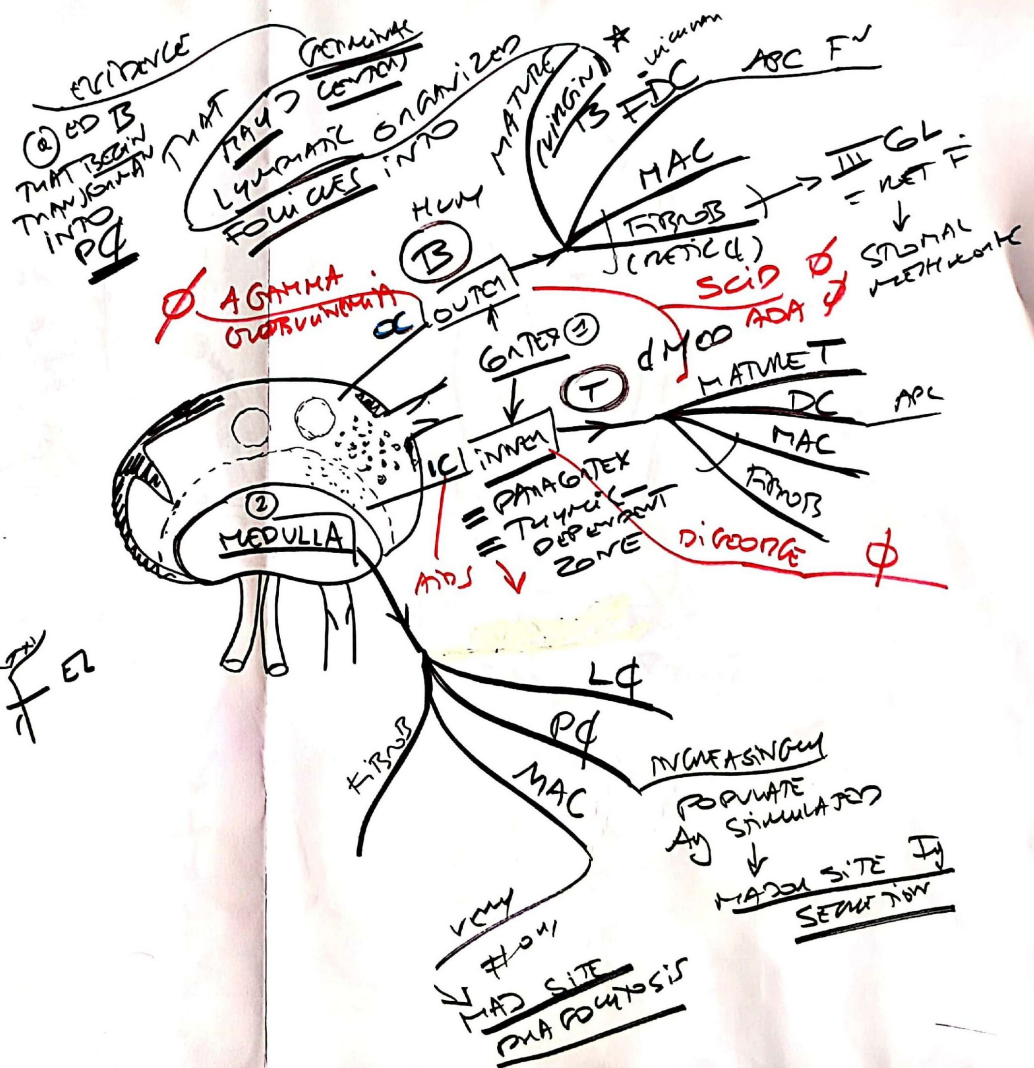 EVIDENCE
ED B
THAT BEGIN
TRANSFORM
INTO
P₵
THAT
GERMINAL
CENTERS
LYMPHATIC ORGANIZED
FOLLICLES INTO
MATURE
B
FDC
APC FN
MAC
FIBROB
(RETIC ₵)
III GL
= RET F
↓
STROMAL
MESHWORK
HUM
B
Ø AGAMMA
GLOBULINEMIA
OC OUTER
SCID Ø
ADA
CORTEX ①
T
MATURE T
DC
APC
MAC
FIBROB
IC INNER
= PARACORTEX
= THYMIC
DEPENDENT
ZONE
AIDS ↓
DIGEORGE Ø
②
MEDULLA
L₵
P₵
INCREASINGLY
POPULATE
Ag STIMULATED
↓
MAJOR SITE Ig
SECRETION
MAC
FIBROB
VERY
MAJ SITE
PHAGOCYTOSIS